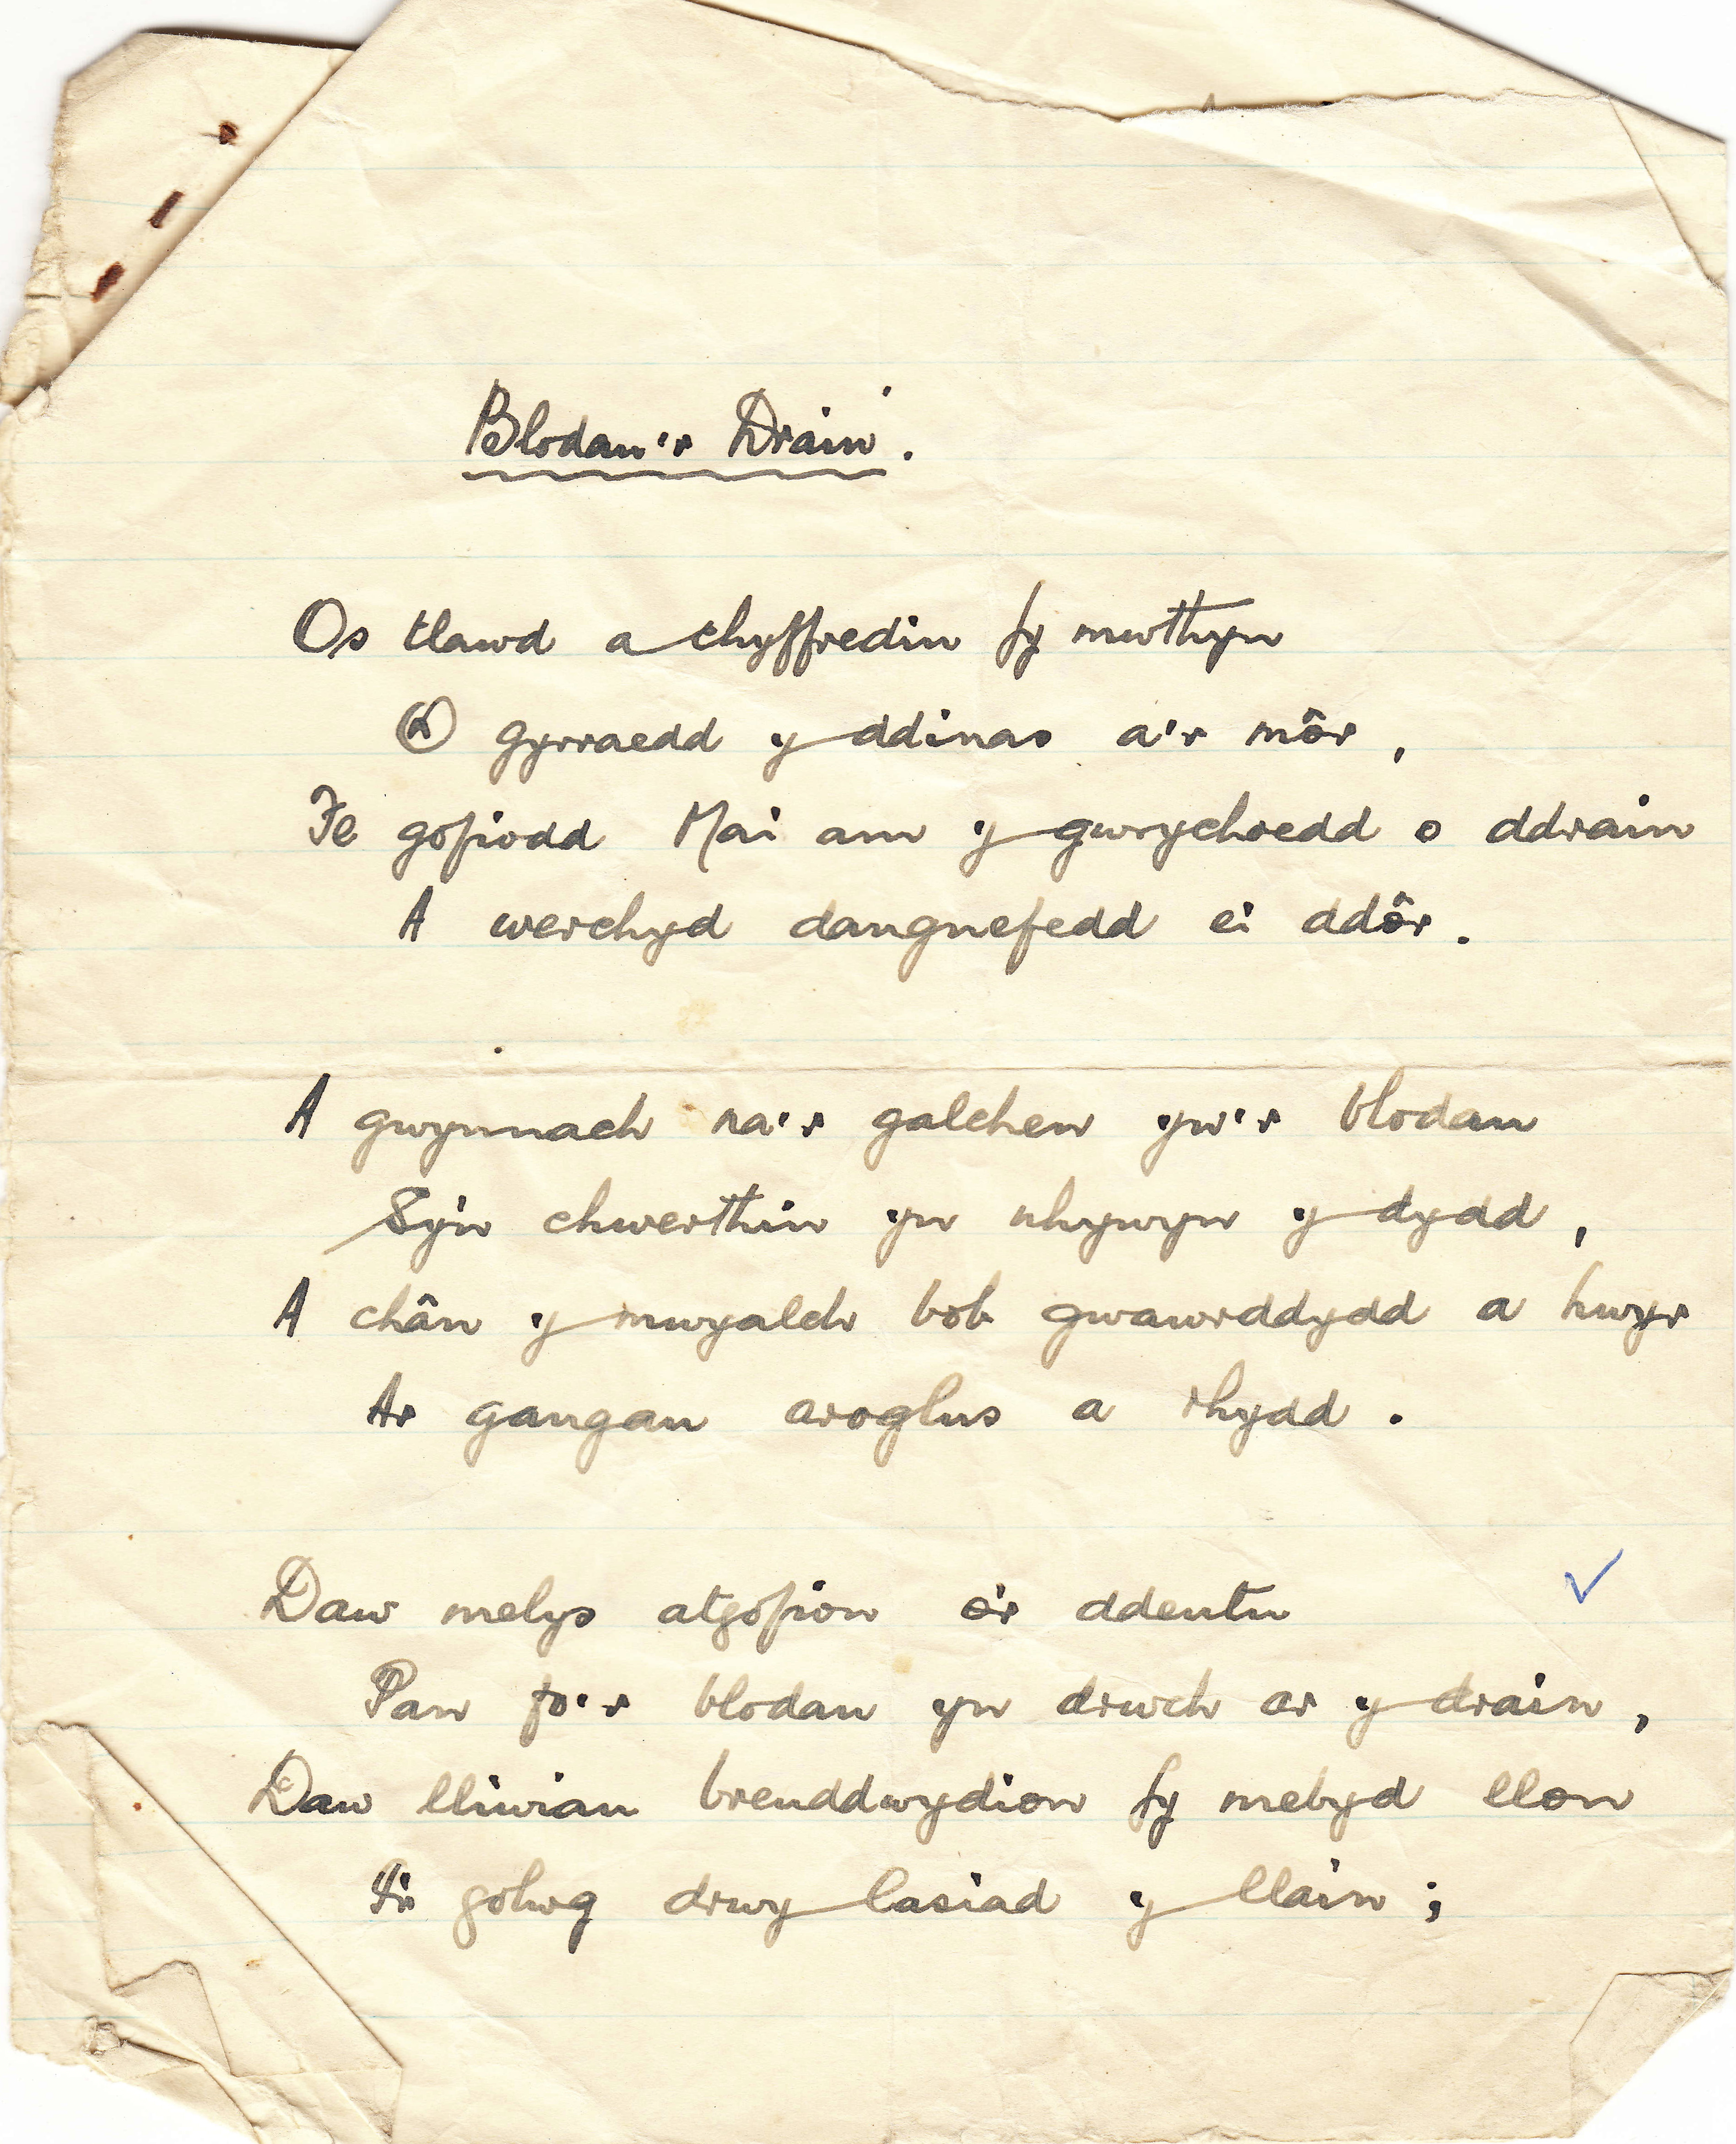 Blodau'r Drain.
Os tlawd a chyffredin fy mwthyn
O gyrraedd y ddinas a'r môr,
Fe gofiodd Mai am y gwrychoedd o ddrain
A werchyd dangnefedd ei ddôr.
A gwynnach na'r galchen yw'r blodau
Sy'n chwerthin yn nhywyn y dydd,
A chân y mwyalch bob gwawrddydd a hwyr
Ar gangau aroglus a rhydd.
Daw melys atgofion o'r ddentu
Pan fo'r blodau yn drwch ar y drain,
Daw lliwiau breuddwydion fy mebyd llon
I'r golwg drwy lasiad y llain;